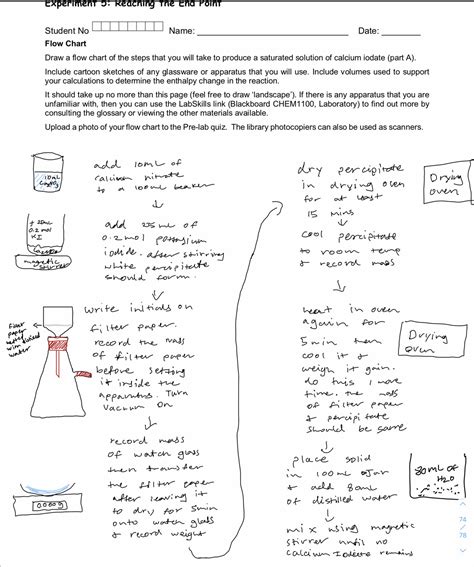 Experiment 5: Reaching the End Point
Student No
Name:
Date:
Flow Chart
Draw a flow chart of the steps that you will take to produce a saturated solution of calcium iodate (part A).
Include cartoon sketches of any glassware or apparatus that you will use. Include volumes used to support
your calculations to determine the enthalpy change in the reaction.
It should take up no more than this page (feel free to draw 'landscape'). If there is any apparatus that you are
unfamiliar with, then you can use the LabSkills link (Blackboard CHEM1100, Laboratory) to find out more by
consulting the glossary or viewing the other materials available.
Upload a photo of your flow chart to the Pre-lab quiz. The library photocopiers can also be used as scanners.
10mL
add 10mL of
calcium nitrate
to a 100mL beaker
+ 25mL
0.2 mol
KI
magnetic
stirrer
add 25mL of
0.2 mol potassium
iodide. after stirring
white percipitate
should form.
filter
paper
water
write initials on
filter paper.
record the mass
of filter paper
before setting
it inside the
apparatus. Turn
Vacuum On
record mass
of watch glass
then transfer
the filter paper
after leaving it
to dry for 5min
onto watch glass
& record weight
0.0000g
dry percipitate
in drying oven
for at least
15 mins
Drying
oven
cool percipitate
to room temp
& record mass
heat in oven
again for
5 min then
cool it &
weigh it gain.
do this 1 more
time. the mass
of filter paper
& percipitate
should be same
Drying
oven
place solid
in 100mL
& add 80mL
of distilled water
80mL of
H2O
mix using magnetic
stirrer until no
calcium remains
74
78